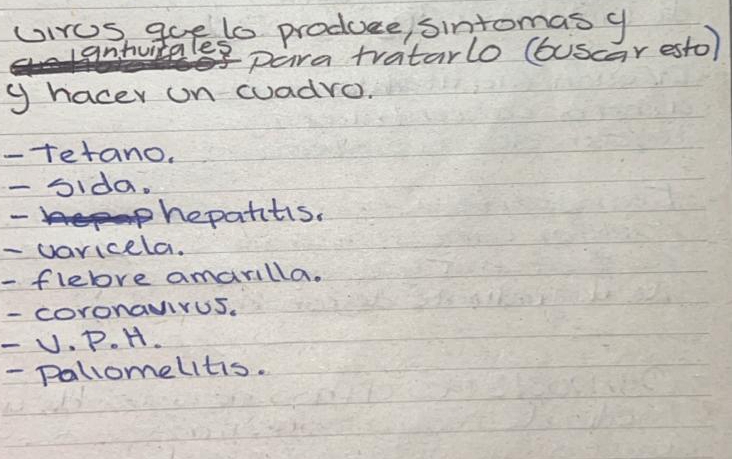 virus que lo produce, sintomas y
antivirales para tratarlo (buscar esto)
y hacer un cuadro.
- Tetano.
- Sida.
- hepatitis.
- varicela.
- fiebre amarilla.
- coronavirus.
- V.P.H.
- Paliomelitis.